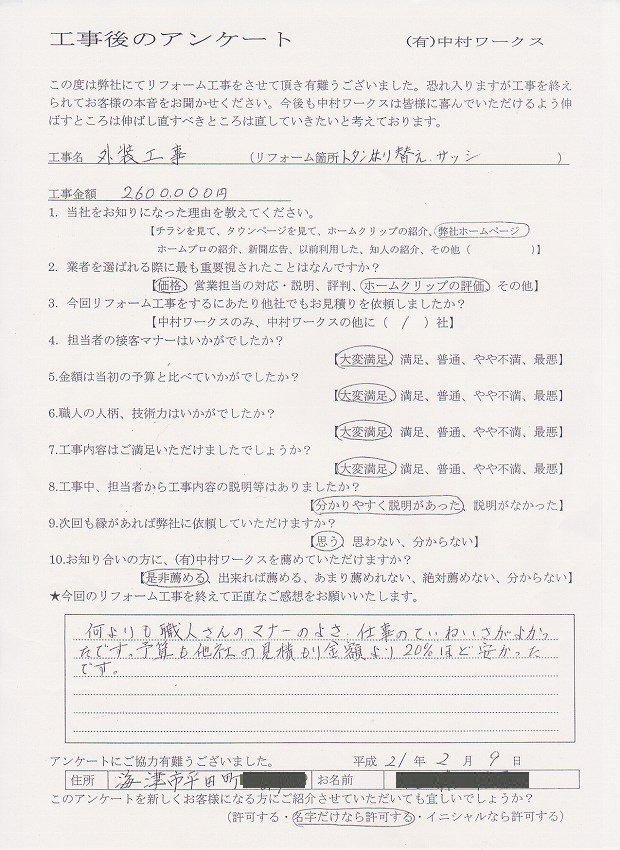 工事後のアンケート (有)中村ワークス
この度は弊社にてリフォーム工事をさせて頂き有難うございました。恐れ入りますが工事を終え
られてお客様の本音をお聞かせください。今後も中村ワークスは皆様に喜んでいただけるよう伸
ばすところは伸ばし直すべきところは直していきたいと考えております。
工事名 外装工事 (リフォーム箇所 トタンはり替え.サッシ )
工事金額 2600,000円
1. 当社をお知りになった理由を教えてください。
【チラシを見て、タウンページを見て、ホームクリップの紹介、弊社ホームページ
ホームプロの紹介、新聞広告、以前利用した、知人の紹介、その他( )】
2. 業者を選ばれる際に最も重要視されたことはなんですか?
【価格、営業担当の対応・説明、評判、ホームクリップの評価、その他】
3. 今回リフォーム工事をするにあたり他社でもお見積りを依頼しましたか?
【中村ワークスのみ、中村ワークスの他に( / )社】
4. 担当者の接客マナーはいかがでしたか?
【大変満足、満足、普通、やや不満、最悪】
5.金額は当初の予算と比べていかがでしたか?
【大変満足、満足、普通、やや不満、最悪】
6.職人の人柄、技術力はいかがでしたか?
【大変満足、満足、普通、やや不満、最悪】
7.工事内容はご満足いただけましたでしょうか?
【大変満足、満足、普通、やや不満、最悪】
8.工事中、担当者から工事内容の説明等はありましたか?
【分かりやすく説明があった、説明がなかった】
9.次回も縁があれば弊社に依頼していただけますか?
【思う、思わない、分からない】
10.お知り合いの方に、(有)中村ワークスを薦めていただけますか?
【是非薦める、出来れば薦める、あまり薦めれない、絶対薦めない、分からない】
★今回のリフォーム工事を終えて正直なご感想をお願いいたします。
何よりも職人さんのマナーのよさ、仕事のていねいさがよかっ
たです。予算も他社の見積もり金額より20%ほど安かった
です。
アンケートにご協力有難うございました。 平成 21 年 2 月 9 日
住所 海津市平田町 お名前
このアンケートを新しくお客様になる方にご紹介させていただいても宜しいでしょうか?
(許可する・名字だけなら許可する・イニシャルなら許可する)